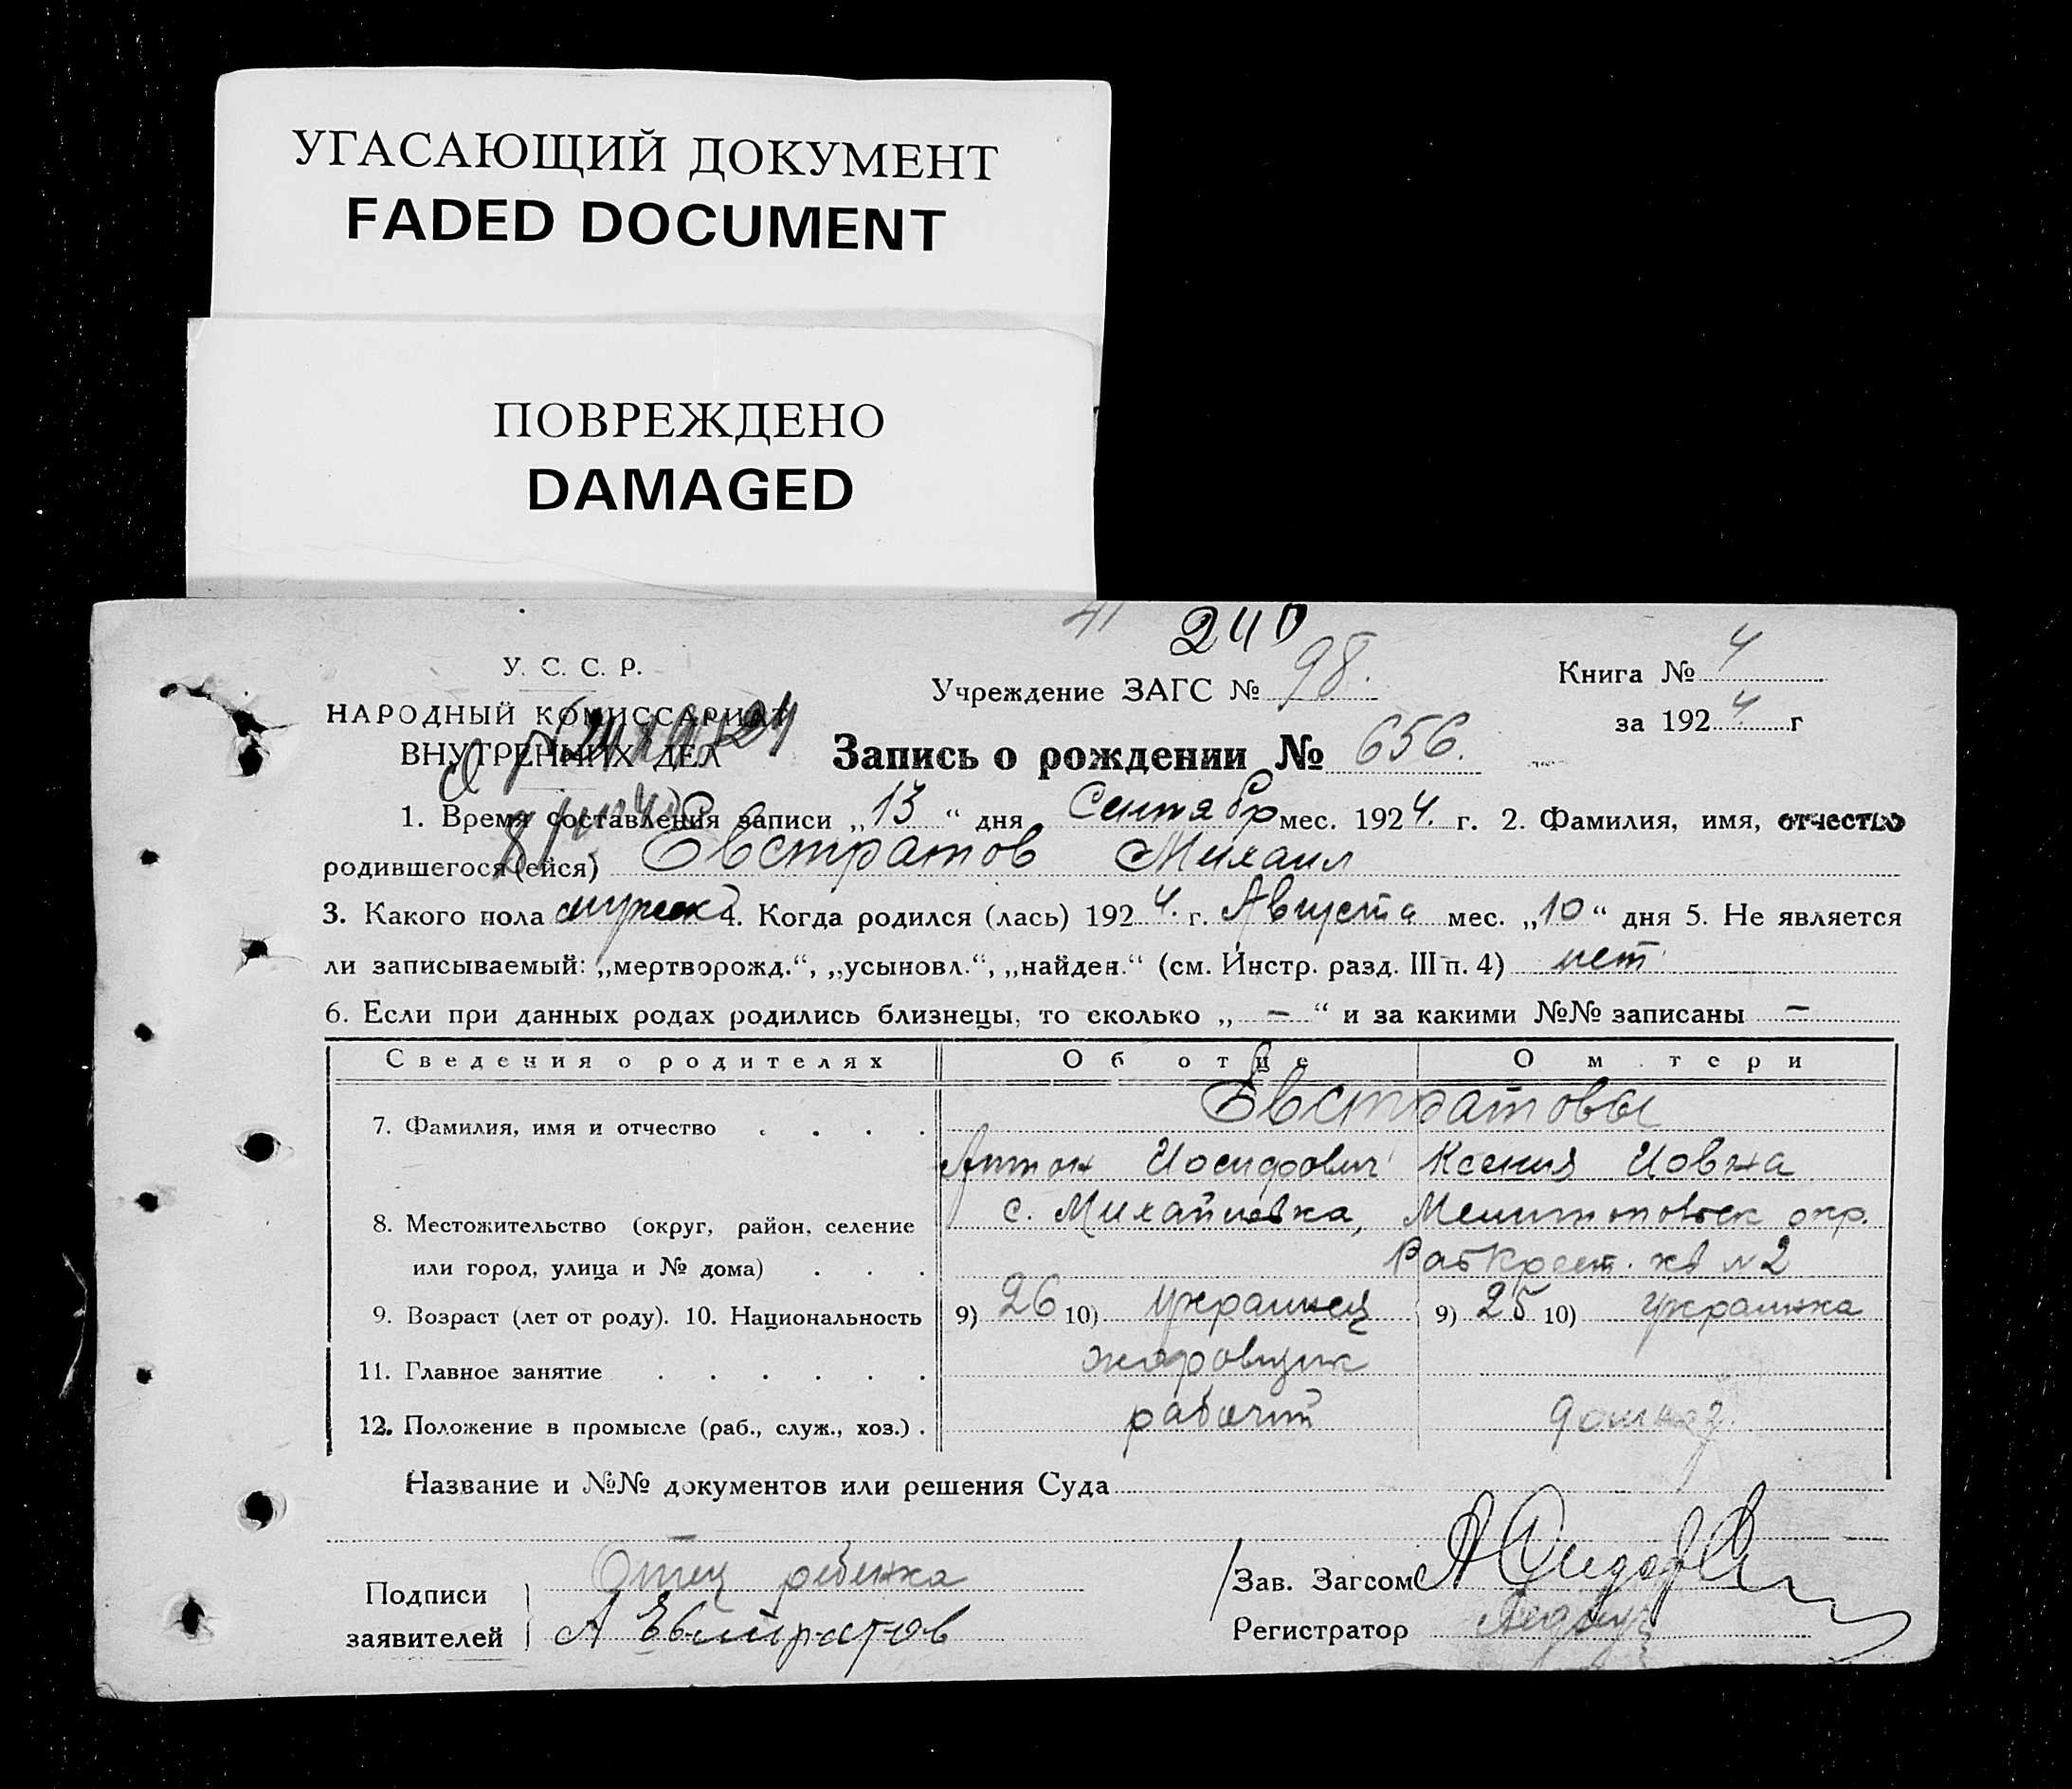 УГАСАЮЩИЙ ДОКУМЕНТ
FADED DOCUMENT
ПОВРЕЖДЕНО
DAMAGED
41 240
У. С. С. Р.
НАРОДНЫЙ КОМИССАРИАТ
ВНУТРЕННИХ ДЕЛ
Учреждение ЗАГС № 98.
Книга № 4
за 192 4 г
Запись о рождении № 656.
1. Время составления записи „ 13 “ дня Сентябр мес. 192 4. г. 2. Фамилия, имя, отчество
родившегося (ейся) Евстратов Михаил
3. Какого пола мужск 4. Когда родился (лась) 192 4. г. Августа мес. „ 10 “ дня 5. Не является
ли записываемый: „мертворожд.“, „усыновл.“, „найден.“ (см. Инстр. разд. III п. 4) нет
6. Если при данных родах родились близнецы, то сколько „ — “ и за какими №№ записаны —
Сведения о родителях Об отце О м тери
Евстратовы
7. Фамилия, имя и отчество . . . .
Антон Иосифович Ксения Иовна
8. Местожительство (округ, район, селение с. Михайловка, Мелитоповск окр.
или город, улица и № дома) . . . РабКрест. кв № 2
9. Возраст (лет от роду). 10. Национальность 9) 26 10) украинец 9) 25 10) украинка
11. Главное занятие . . . . . .
12. Положение в промысле (раб., служ., хоз.) . рабочий
Название и №№ документов или решения Суда
Подписи Отец ребенка
заявителей А Евстратов
Зав. Загсом
Регистратор